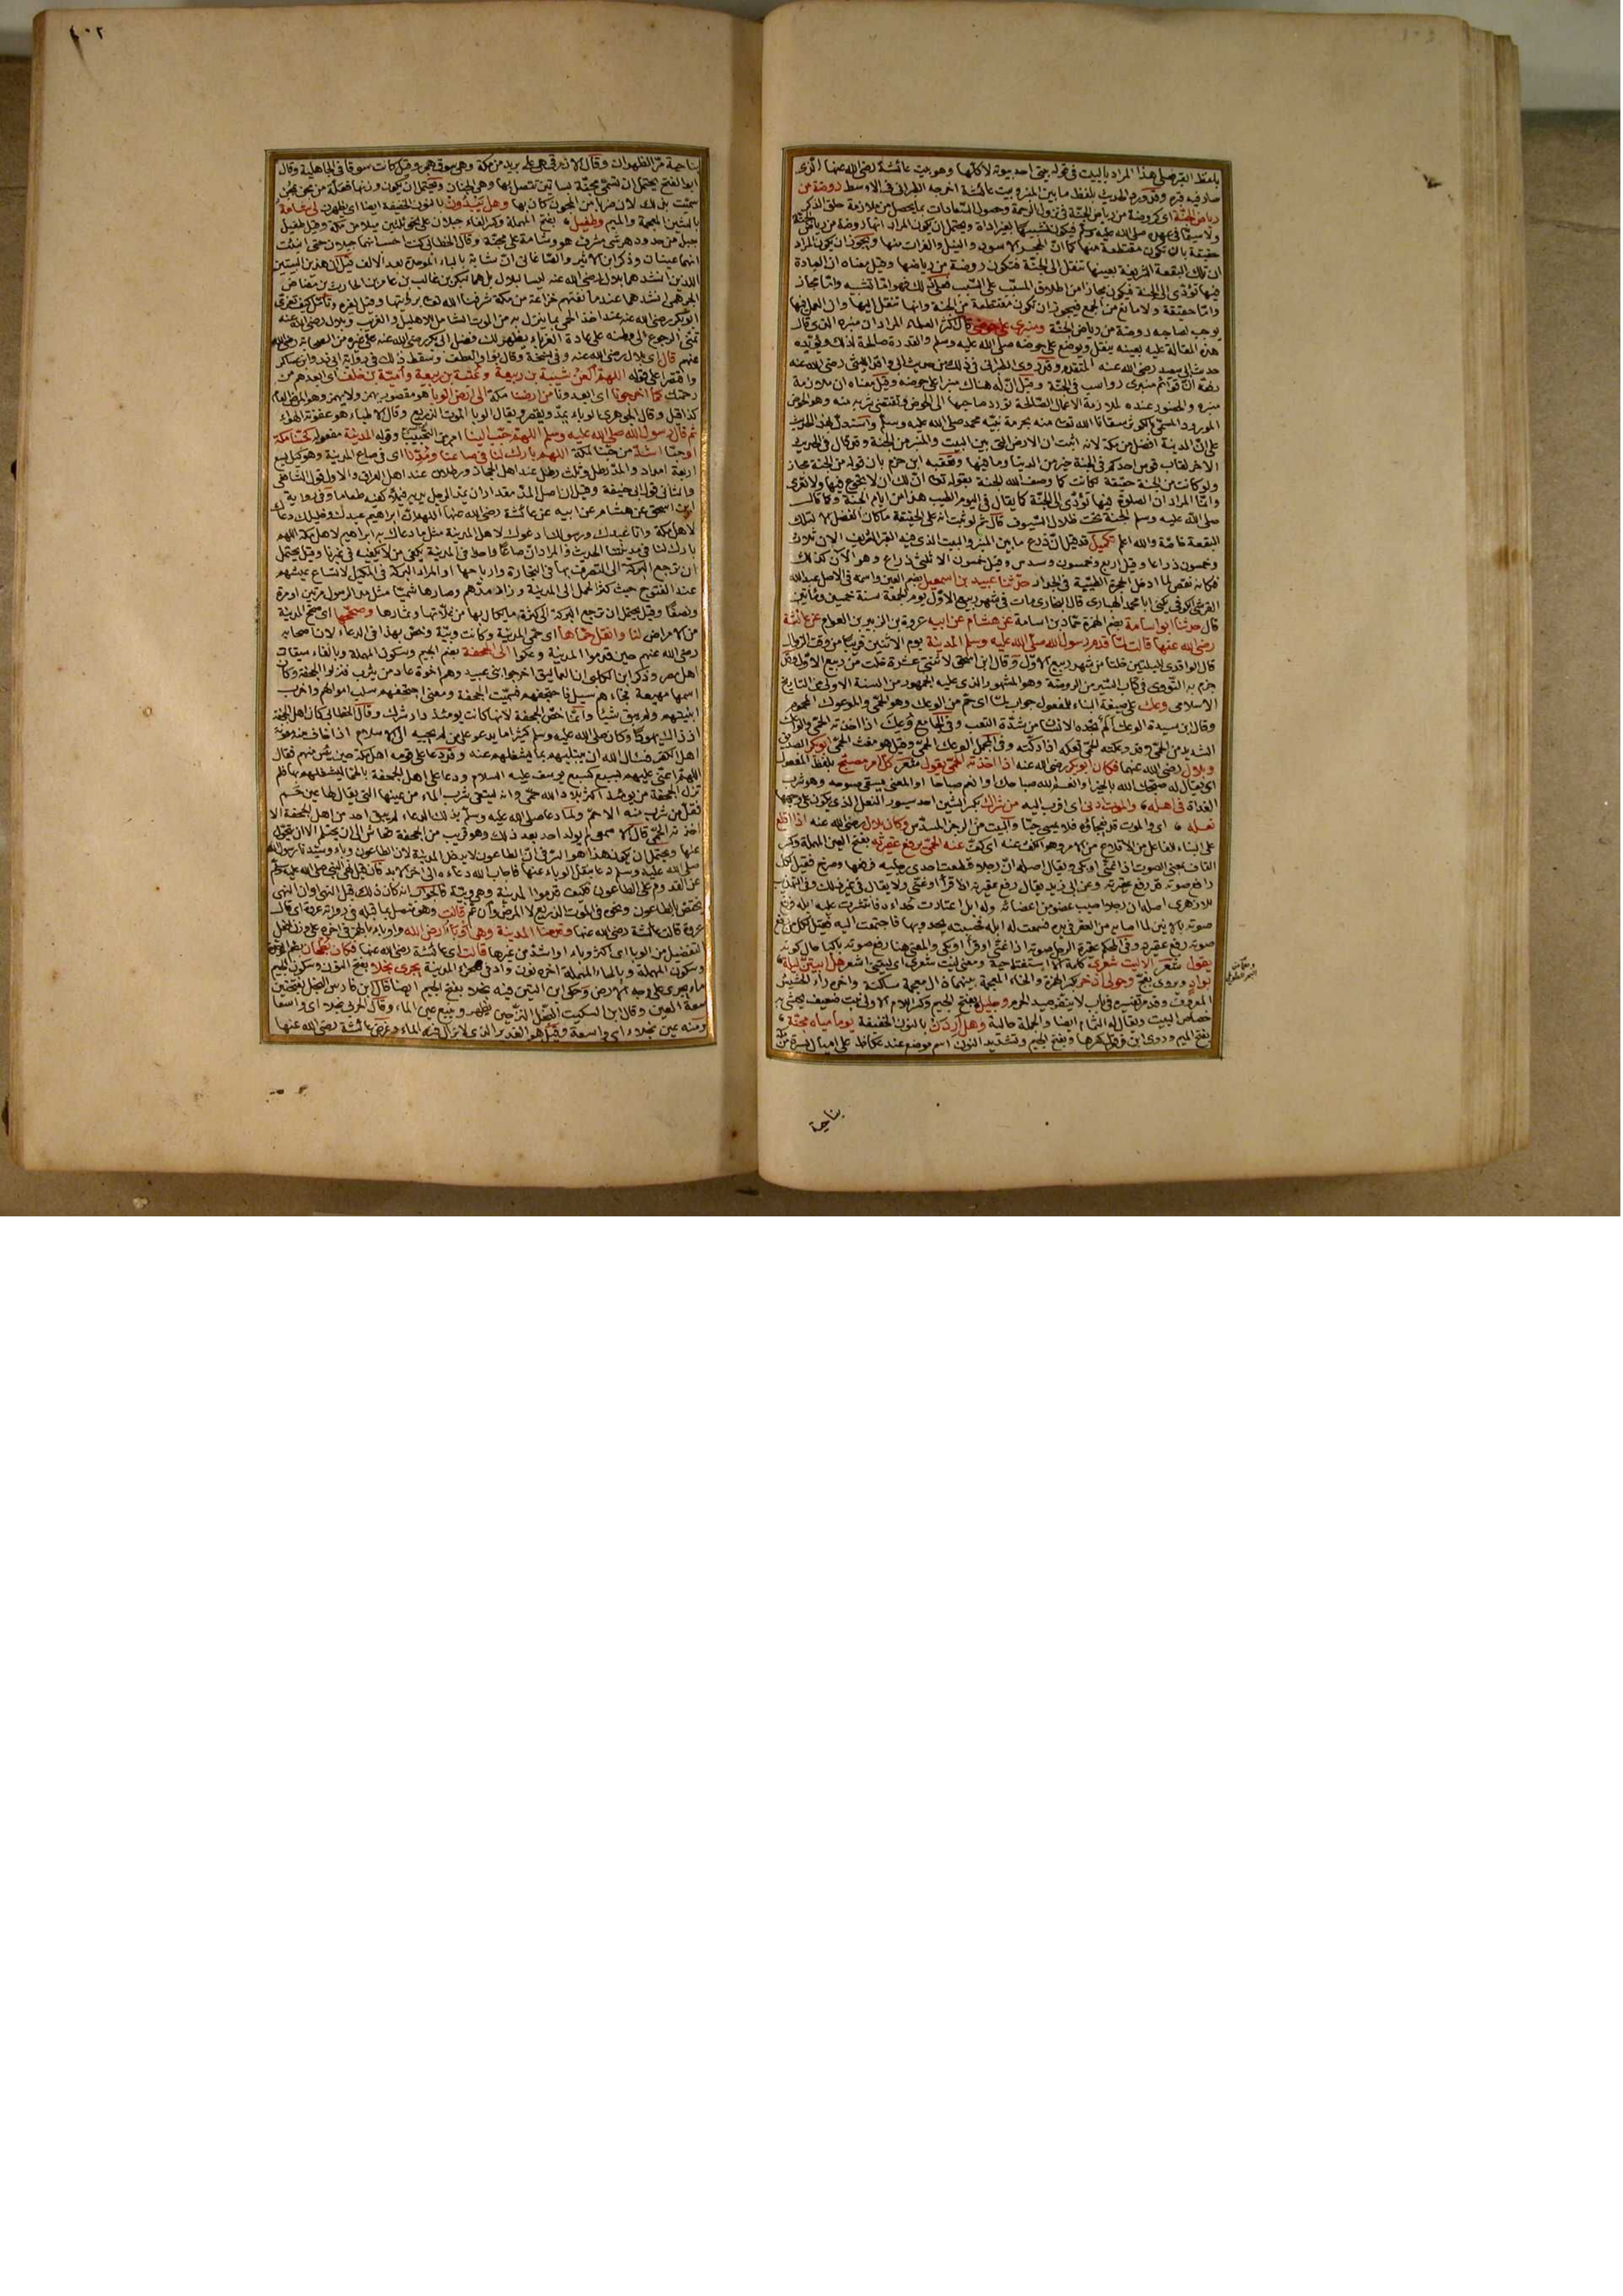 بلفظ القبر فعلى هذا المراد بالبيت في قوله بيتي احد بيوته لا كلها وهو بيت عائشة رضي الله عنها الذي
صار فيه قبره وقد ورد الحديث بلفظ ما بين المنبر وبيت عائشة اخرجه الطبراني في الاوسط روضة من
رياض الجنة اي كروضة من رياض الجنة في نزول الرحمة وحصول السعادات بما يحصل من ملازمة حلق الذكر
ولا سيما في عهده صلى الله عليه وسلم فيكون تشبيها بغير اداة ويحتمل ان يكون المراد انها روضة من رياض الجنة
حقيقة بان تكون مقتطعة منها كما ان الحجر الاسود والنيل والفرات منها ويجوز ان يكون المراد
ان تلك البقعة الشريفة بعينها تنقل الى الجنة فتكون روضة من رياضها وقيل معناه ان العبادة
فيها تؤدي الى الجنة فيكون مجازا من اطلاق المسبب على السبب فعلى ذلك فهو اما تشبيه واما مجاز
واما حقيقة ولا مانع من الجمع فيجوز ان تكون مقتطعة من الجنة وانها تنقل اليها وان العمل فيها
يوجب لصاحبه روضة من رياض الجنة ومنبري على حوضي قال اكثر العلماء المراد ان منبره الذي قال
هذه المقالة عليه بعينه ينقل ويوضع على حوضه صلى الله عليه وسلم والقدرة صالحة لذلك ويؤيده
حديث ابي سعيد رضي الله عنه المتقدم وقد روى الطبراني في ذلك من حديث ابي واقد الليثي رضي الله عنه
رفعه ان قوائم منبري رواتب في الجنة وقيل ان له هناك منبرا على حوضه وقيل معناه ان ملازمة
منبره والحضور عنده لملازمة الاعمال الصالحة تورد صاحبها الى الحوض وتقتضي شربه منه وهو الحوض
المورود المسمى بالكوثر سقانا الله تعالى منه بحرمة نبيه محمد صلى الله عليه وسلم واستدل بهذا الحديث
على ان المدينة افضل من مكة لانه اثبت ان الارض التي بين البيت والمنبر من الجنة وقد قال في الحديث
الاخر لقاب قوس احدكم في الجنة خير من الدنيا وما فيها وتعقبه ابن حزم بان قوله من الجنة مجاز
ولو كانت من الجنة حقيقة لكانت كما وصف الله الجنة بقوله تعالى ان لك ان لا تجوع فيها ولا تعرى
وانما المراد ان الصلوة فيها تؤدي الى الجنة كما يقال في اليوم الطيب هذا من ايام الجنة وكما قال
صلى الله عليه وسلم الجنة تحت ظلال السيوف قال ثم لو ثبت انه على الحقيقة ما كان الفضل الا لتلك
البقعة خاصة والله اعلم تكميل قد قيل ان ذرع ما بين المنبر والبيت الذي فيه القبر الشريف الان ثلاث
وخمسون ذراعا وقيل اربع وخمسون وسدس وقيل خمسون الا ثلثي ذراع وهو الآن كذلك
فكانه نقص لما ادخل الحجرة الطيبة في الجدار حدثنا عبيد بن اسمعيل بضم العين واسمه في الاصل عبد الله
القرشي الكوفي يكنى ابا محمد الهباري قال البخاري مات في شهر ربيع الاول يوم الجمعة سنة خمسين ومأتين
قال حدثنا ابو اسامة بضم الهمزة حماد بن اسامة عن هشام عن ابيه عروة بن الزبير بن العوام عن عائشة
رضي الله عنها قالت لما قدم رسول الله صلى الله عليه وسلم المدينة يوم الاثنين قريبا من وقت الزوال
قال الواقدي لليلتين خلتا من شهر ربيع الاول وقال ابن اسحق لاثنتي عشرة خلت من ربيع الاول وقد
جزم به النووي في كتاب السير من الروضة وهو المشهور الذي عليه الجمهور من السنة الاولى من التاريخ
الاسلامي وعك على صيغة البناء للمفعول جواب لما اي حم من الوعك وهو الحمى والموعوك المحموم
وقال ابن سيدة الوعك الم يجده الانسان من شدة التعب وفي الجامع وعك اذا اخذته الحمى والواعك
الشديد من الحمى وقد وعكته الحمى تعكه اذا دكته وفي المجمل الوعك الحمى وقيل هو مغث الحمى ابو بكر الصديق
وبلال رضي الله عنهما فكان ابو بكر رضي الله عنه اذا اخذته الحمى يقول شعر كل امر مصبح بلفظ المفعول
اي يقال له صبحك الله بالخير او انعم الله صباحك او انعم صباحا او المعنى يسقى صبوحه وهو شرب
الغداة في اهله، والموت ادنى اي اقرب اليه من شراك بكسر الشين احد سيور النعل الذي يكون على وجهها
نعله، اي والموت قد يفجأه فلا يمسي حيا والبيت من الرجز المسدس وكان بلال رضي الله عنه اذا اقلع
على البناء للفاعل من الاقلاع من الامر وهو الكف عنه اي كف عنه الحمى يرفع عقيرته بفتح العين المهملة وكسر
القاف بمعنى الصوت اذا غنى او بكى ويقال اصله ان رجلا قطعت احدى رجليه فرفعها وصرخ فقيل لكل
رافع صوته قد رفع عقيرته وعن ابي زيد يقال رفع عقيرته اذا قرأ او غنى ولا يقال في غير ذلك وفي التهذيب
للازهري اصله ان رجلا اصيب عضو من اعضائه وله ابل اعتادت حداءه فانتشرت عليه ابله فرفع
صوته بالانين لما اصابه من العقر في يده فسمعت له ابله فحسبته يحدو بها فاجتمعت اليه فقيل لكل من رفع
صوته رفع عقيرته وفي المحكم عقيرة الرجل صوته اذا غنى او قرأ او بكى والمعنى هنا رفع صوته باكيا حال كونه
يقول شعر الا ليت شعري كلمة الا استفتاحية ومعنى ليت شعري اي ليتني اشعر هل ابيتن ليلة
بواد ويروى بفخ وحولي اذخر بكسر الهمزة والخاء المعجمة بينهما ذال معجمة ساكنة واخره راء الحشيش
المعروف وقد مر تفسيره في باب لا ينفر صيد الحرم وجليل بفتح الجيم وكسر اللام الاولى نبت ضعيف يحشى به
خصاص البيت ويقال له الثمام ايضا والجملة حالية وهل اردن بالنون الخفيفة يوما مياه مجنة،
بفتح الميم وروى ابن قرقول كسرها وبفتح الجيم وتشديد النون اسم موضع عند عكاظ على اميال يسيرة من مكة
بناحية
٤٠٢
بناحية مر الظهران وقال الازرقي هي على بريد من مكة وهي سوق هجر وقيل كانت سوقا في الجاهلية وقال
ابو الفتح يحتمل ان تسمى مجنة ببساتين تتصل بها وهي الجنان ويحتمل ان يكون وزنها فعلة من مجن يمجن
سميت بذلك لان ضربا من المجون كان بها وهل يبدون بالنون الخفيفة ايضا اي يظهرن لي شامة
بالشين المعجمة والميم وطفيل، بفتح المهملة وكسر الفاء جبلان على نحو ثلثين ميلا من مكة وقيل طفيل
جبل من حدود هرشى مشرف هو وشامة على مجنة وقال الخطابي كنت احسبهما جبلين حتى انبئت
انهما عينان وذكر ابن الاثير والصاغاني ان شابة بالباء الموحدة بعد الالف قيل ان هذين البيتين
اللذين انشدهما بلال رضي الله عنه ليسا لبلال بل هما لبكر بن غالب بن عامر بن الحارث بن مضاض
الجرهمي انشدهما عندما نفتهم خزاعة من مكة شرفها الله تعالى برؤيتها وقيل لغيره وتأمل كيف تعزى
ابو بكر رضي الله عنه عند اخذ الحمى بما ينزل به من الموت الشامل للاهل والغريب وبلال رضي الله عنه
تمنى الرجوع الى وطنه على عادة الغرباء يظهر لك فضل ابي بكر رضي الله عنه على غيره من الصحابة رضي الله
عنهم قال اي بلال رضي الله عنه وفي نسخة وقال بواو العطف وسقط ذلك في رواية ابي ذر وابن عساكر
واقتصرا على قوله اللهم العن شيبة بن ربيعة وعتبة بن ربيعة وامية بن خلف اي ابعدهم من
رحمتك كما اخرجونا اي ابعدونا من ارضنا مكة الى ارض الوبا هو مقصور بهمز ولا يهمز وهو المرض العام
كذا قيل وقال الجوهري الوباء يمد ويقصر ويقال الوبا الموت الذريع وقال الاطباء هو عفونة الهواء
ثم قال رسول الله صلى الله عليه وسلم اللهم حبب الينا امر من التحبيب وقوله المدينة مفعوله كحبنا مكة
او حبا اشد من حبنا لمكة اللهم بارك لنا في صاعنا ومدنا اي في صاع المدينة وهو كيل يسع
اربعة امداد والمد رطل وثلث رطل عند اهل الحجاز ورطلان عند اهل العراق والاول قول الشافعي
والثاني قول ابي حنيفة وقيل ان اصل المد مقدار ان يمد الرجل يديه فيملأ كفيه طعاما وفي رواية
ابن اسحق عن هشام عن ابيه عن عائشة رضي الله عنها اللهم ان ابراهيم عبدك وخليلك دعاك
لاهل مكة وانا عبدك ورسولك ادعوك لاهل المدينة مثل ما دعاك به ابراهيم لاهل مكة اللهم
بارك لنا في مدينتنا الحديث والمراد ان صاعا واحدا في المدينة يكفي من لا يكفيه في غيرها وقيل يحتمل
ان ترجع البركة الى التصرف بها في التجارة وارباحها او المراد البركة في المكيل لاتساع عيشهم
عند الفتوح حيث كثر الحمل الى المدينة وزاد مدهم وصار هاشميا مثل مد الرسول مرتين او مرة
ونصفا وقيل يحتمل ان ترجع البركة الى كثرة ما يكال بها من غلاتها وثمارها وصححها اي صحح المدينة
من الامراض لنا وانقل حماها اي حمى المدينة وكانت وبيئة وخص بهذا في الدعاء لان اصحابه
رضي الله عنهم حين قدموا المدينة وعكوا الى الجحفة بضم الجيم وسكون المهملة وبالفاء ميقات
اهل مصر وذكر ابن الكلبي ان العماليق اخرجوا بني عبيل وهم اخوة عاد من يثرب فنزلوا الجحفة وكان
اسمها مهيعة فجاءهم سيل فاجتحفهم فسميت الجحفة ومعنى اجتحفهم سلب اموالهم واخرب
ابنيتهم ولم يبق شيئا وانما خص الجحفة لانها كانت يومئذ دار شرك وقال الخطابي كان اهل الجحفة
اذ ذاك يهودا وكان صلى الله عليه وسلم كثيرا ما يدعو على من لم يجبه الى الاسلام اذا خاف منه معونة
اهل الكفر فسأل الله ان يبتليهم بما يشغلهم عنه وقد دعا على قومه اهل مكة حين يئس منهم فقال
اللهم اعني عليهم بسبع كسبع يوسف عليه السلام ودعا على اهل الجحفة بالحمى ليشغلهم بها فلم
تزل الجحفة من يومئذ اكثر بلاد الله حمى وانه ليتقى شرب الماء من عينها التي يقال لها عين خم
فقل من شرب منه الا حم ولما دعا صلى الله عليه وسلم بذلك الدعاء لم يبق احد من اهل الجحفة الا
اخذته الحمى قال الاصمعي لم يولد احد بعد ذلك وهو قريب من الجحفة فعاش الى ان يحتلم الا ان يتحول
عنها ويحتمل ان يكون هذا هو السر في ان الطاعون لا يدخل المدينة لان الطاعون وباء وسيدنا رسول الله
صلى الله عليه وسلم دعا بنقل الوباء عنها فاجاب الله دعاءه الى اخر الابد فان قيل نهى النبي صلى الله عليه وسلم
عن القدوم على الطاعون فكيف قدموا المدينة وهي وبيئة فالجواب انه كان ذلك قبل النهي او ان النهي
يختص بالطاعون ونحوه في الموت الذريع لا المرض وان عم قالت وهو متصل بما قبله في رواية عروة اي قال
عروة قالت عائشة رضي الله عنها وقدمنا المدينة وهي اوبأ ارض الله واوبأ بالهمز في اخره على وزن افعل
التفضيل من الوبا اي اكثر وباء او اشد من غيرها قالت اي عائشة رضي الله عنها فكان بطحان بضم الموحدة
وسكون المهملة وبالحاء المهملة اخره نون واد في صحراء المدينة يجري نجلا بفتح النون وسكون الجيم
ماء يجري على وجه الارض وحكى ابن التين فيه نجلا بفتح الجيم ايضا قال ابن فارس النجل بفتحتين
سعة العين وقال ابن السكيت النجل النز حين يظهر وينبع عين الماء وقال الحربي نجلا اي واسعا
ومنه عين نجلاء اي واسعة وقيل هو الغدير الذي لا يزال فيه الماء وغرض عائشة رضي الله عنها